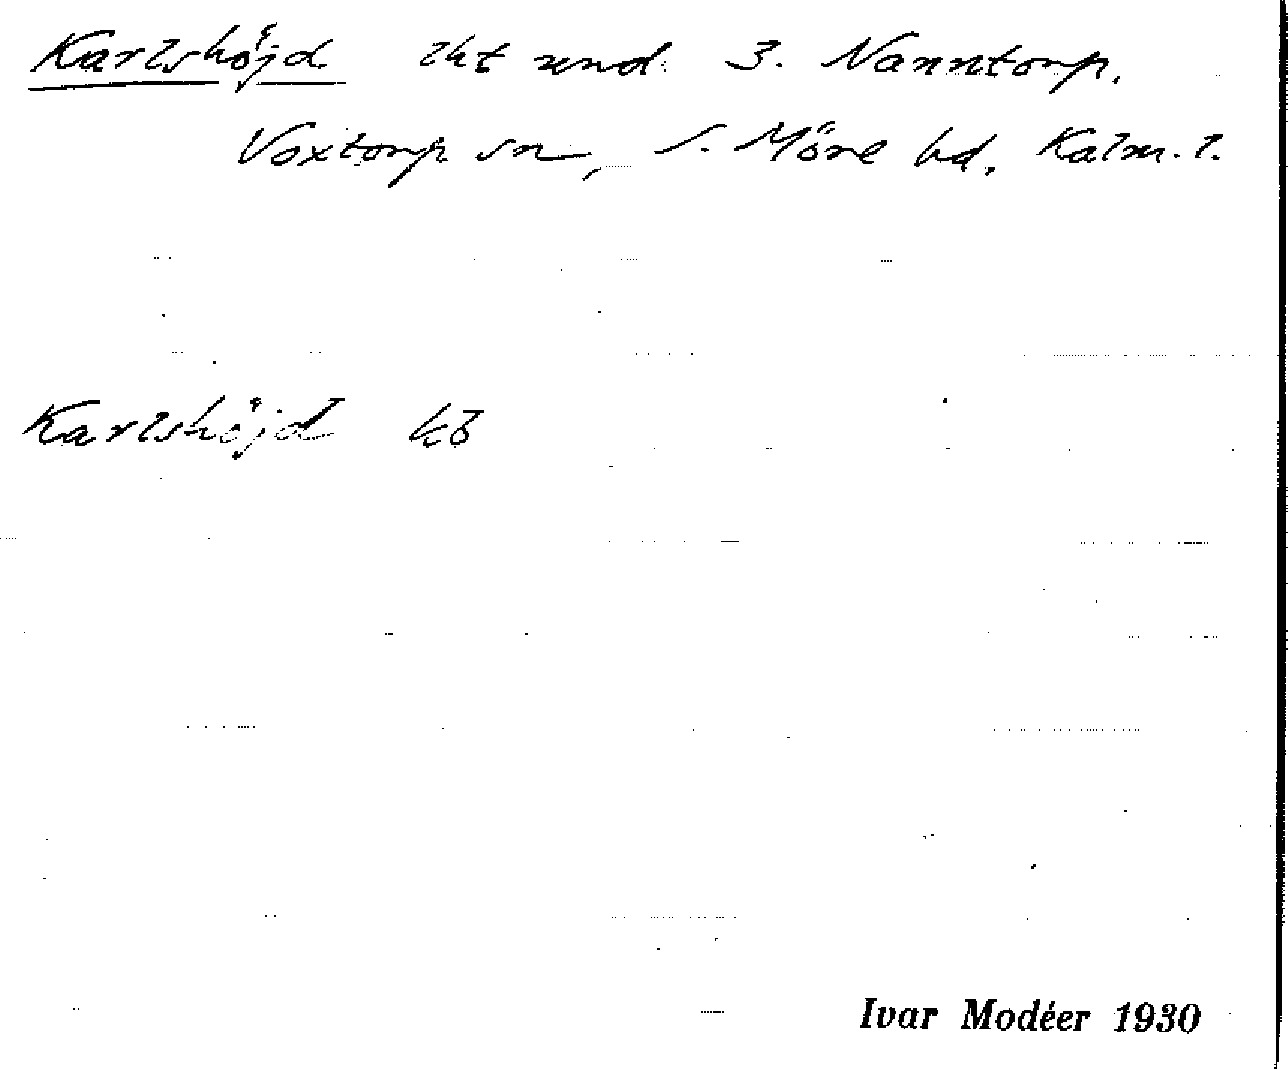 Karlshöjd lht und. 3. Nanntorp.
Voxtorp sn, S. Möre hd. Kalm. l.
Karlshöjd kb
Ivar Modéer 1930